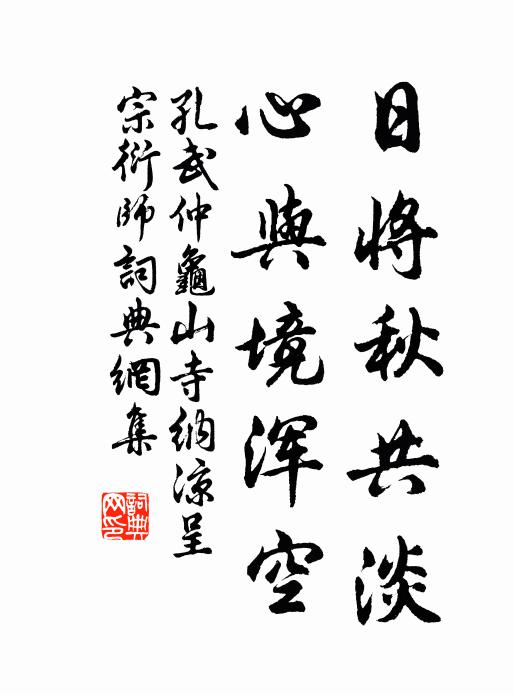 日將秋共淡
心與境浑空
孔武仲龜山寺納涼呈
宗衍師詞典網集
詞典
网印